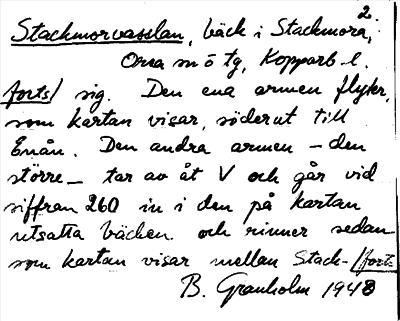 2.
Stackmorvasslan, bäck i Stackmora,
Orsa sn ö tg, Kopparb. l.
forts/ sig. Den ena armen flyter,
som kartan visar, söderut till
Enån. Den andra armen – den
större – tar av åt V och går vid
siffran 260 in i den på kartan
utsatta bäcken och rinner sedan
som kartan visar mellan Stack- /forts
B. Granholm 1948